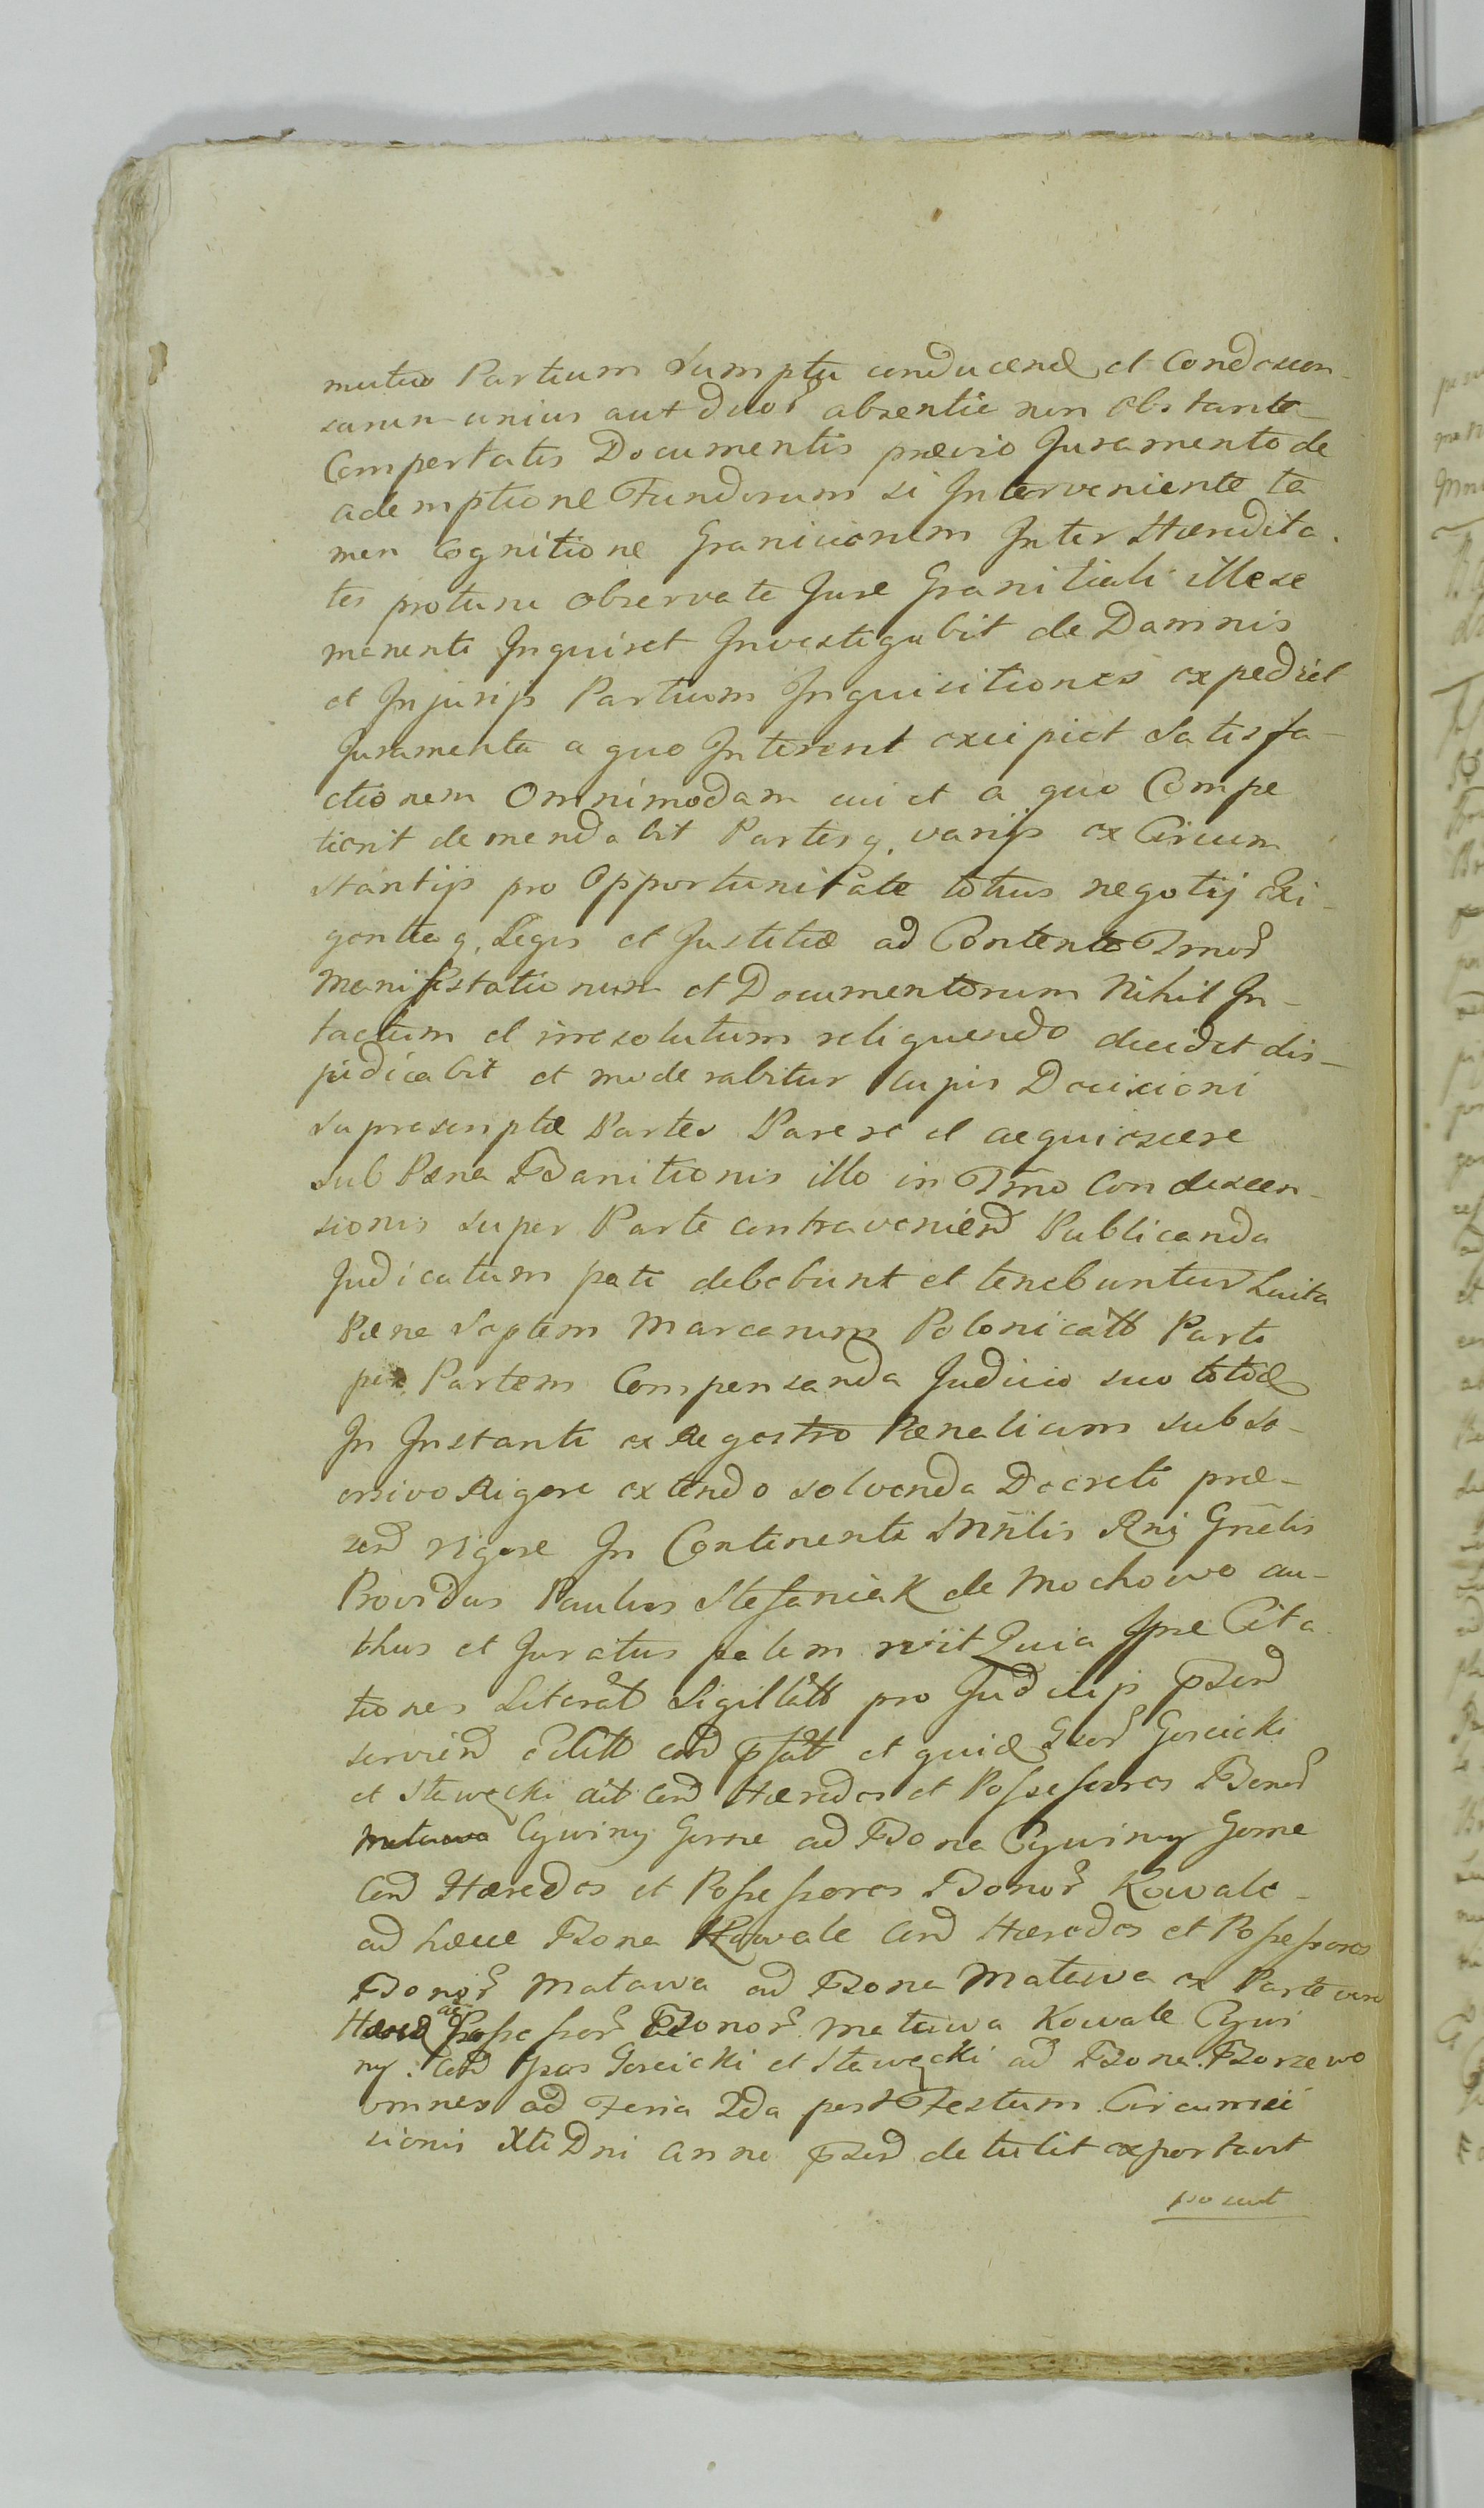 mutuo Partium Sumptu conducend et Condescen-
surum unius aut duor absentie non obstante
Comportatis Documentis prævio Juramento de
ademptione Fundorum si Interveniente ta
men Cognitione Granicierum Inter Hæredita-
tes protunc observate Jure Granitiali illese
manente Inquiret Investigabit de Damnis
et Injurijs Partium Inquisitiones expediet
Juramenta a quo Intererit excipiet Satisfa-
ctionem Omnimodam cui et a quo Compe
tierit demendabit Partesq. varijs ex Circum
stantijs pro Opportunitate totius negotij exi-
gentia q. Legis et Justitiæ ad Contenta Tmor
Manifestationum et Documentorum Nihil In-
tactum et irresolutum relinquendo decidet dis-
judicabit et moderabitur Cujus Decisioni
supra scriptæ Partes Parere et acquiescere
sub Pæna Banitionis illo in Tmo Condescen-
sionis super Parte contraveniend Publicanda
Judicatum pati debebunt et tenebuntur Luita
Pæna Septem Marcarum Polonicatt Parte
per Partem Compensanda Judicio suo totid
In Instanti ex Regestro Pænalium sub so-
ersivo Rigore extendo solvenda Decreti præ-
sen rigore In Continenti Mnlis Rni Gnelis
Providus Paulus Stefaniak de Mochowo au-
thus et Juratus palem rviit Quia Ipse Cita
tiones Literat Sigillatt pro Judicijs pzend
serviend editt cord psatt et quid Gsor Gorcicki
et Stawęcki ait Cord Hæredes et Possessores Bonor
Cywiny Gorne ad Bona Cywiny Gorne
Cord Hæredes et Possessores Bonor Kowale
ad hæce Bona Kowale Cord Hæredes et Possessores
Bonor Matawa ad Bona Matawa ex Parte vero
Hæred ac Possessor Bonor Matawa Kowale Cywi
ny. Cord Ipsos Gorcicki et Stawęcki ad Bona Borzewo
omnes ad Feria 2da post Festum Circumci
sionis Xti Dni Anno pzend detulit exportavit
po suit